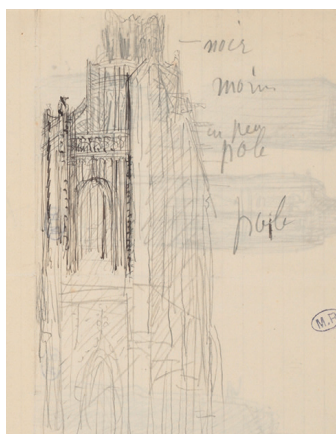 noir
moins
un peu
pâle
pâle
M.P